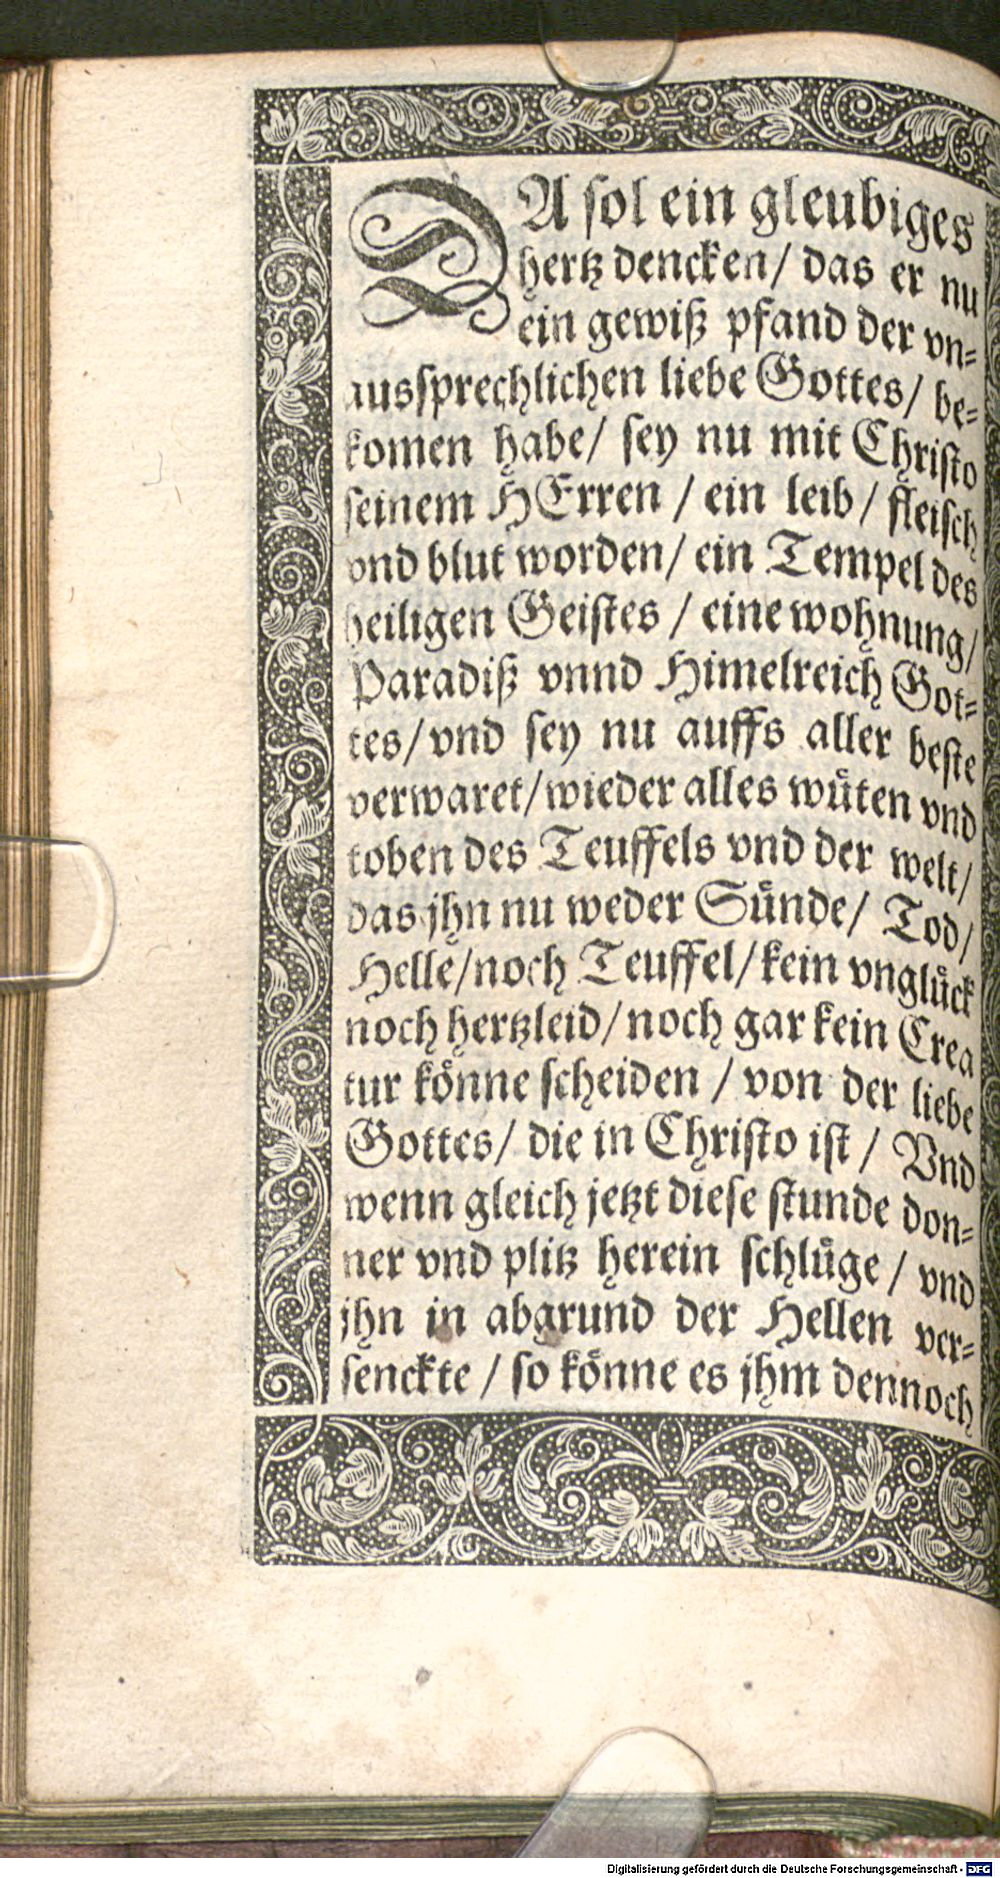 DA sol ein gleubiges
hertz dencken/ das er nu
ein gewiß pfand der vn⸗
aussprechlichen liebe Gottes/ be⸗
komen habe/ sey nu mit Christo
seinem HErren / ein leib/ fleisch
vnd blut worden/ ein Tempel des
heiligen Geistes / eine wohnung/
Paradiß vnnd Himelreich Got⸗
tes/ vnd sey nu auffs aller beste
verwaret/ wieder alles wuͤten vnd
toben des Teuffels vnd der welt/
das jhn nu weder Suͤnde/ Tod/
Helle/ noch Teuffel/ kein vngluͤck
noch hertzleid/ noch gar kein Crea
tur koͤnne scheiden / von der liebe
Gottes/ die in Christo ist / Vnd
wenn gleich jetzt diese stunde don⸗
ner vnd plitz herein schluͤge / vnd
jhn in abgrund der Hellen ver⸗
senckte / so koͤnne es jhm dennoch
Digitalisierung gefördert durch die Deutsche Forschungsgemeinschaft - DFG